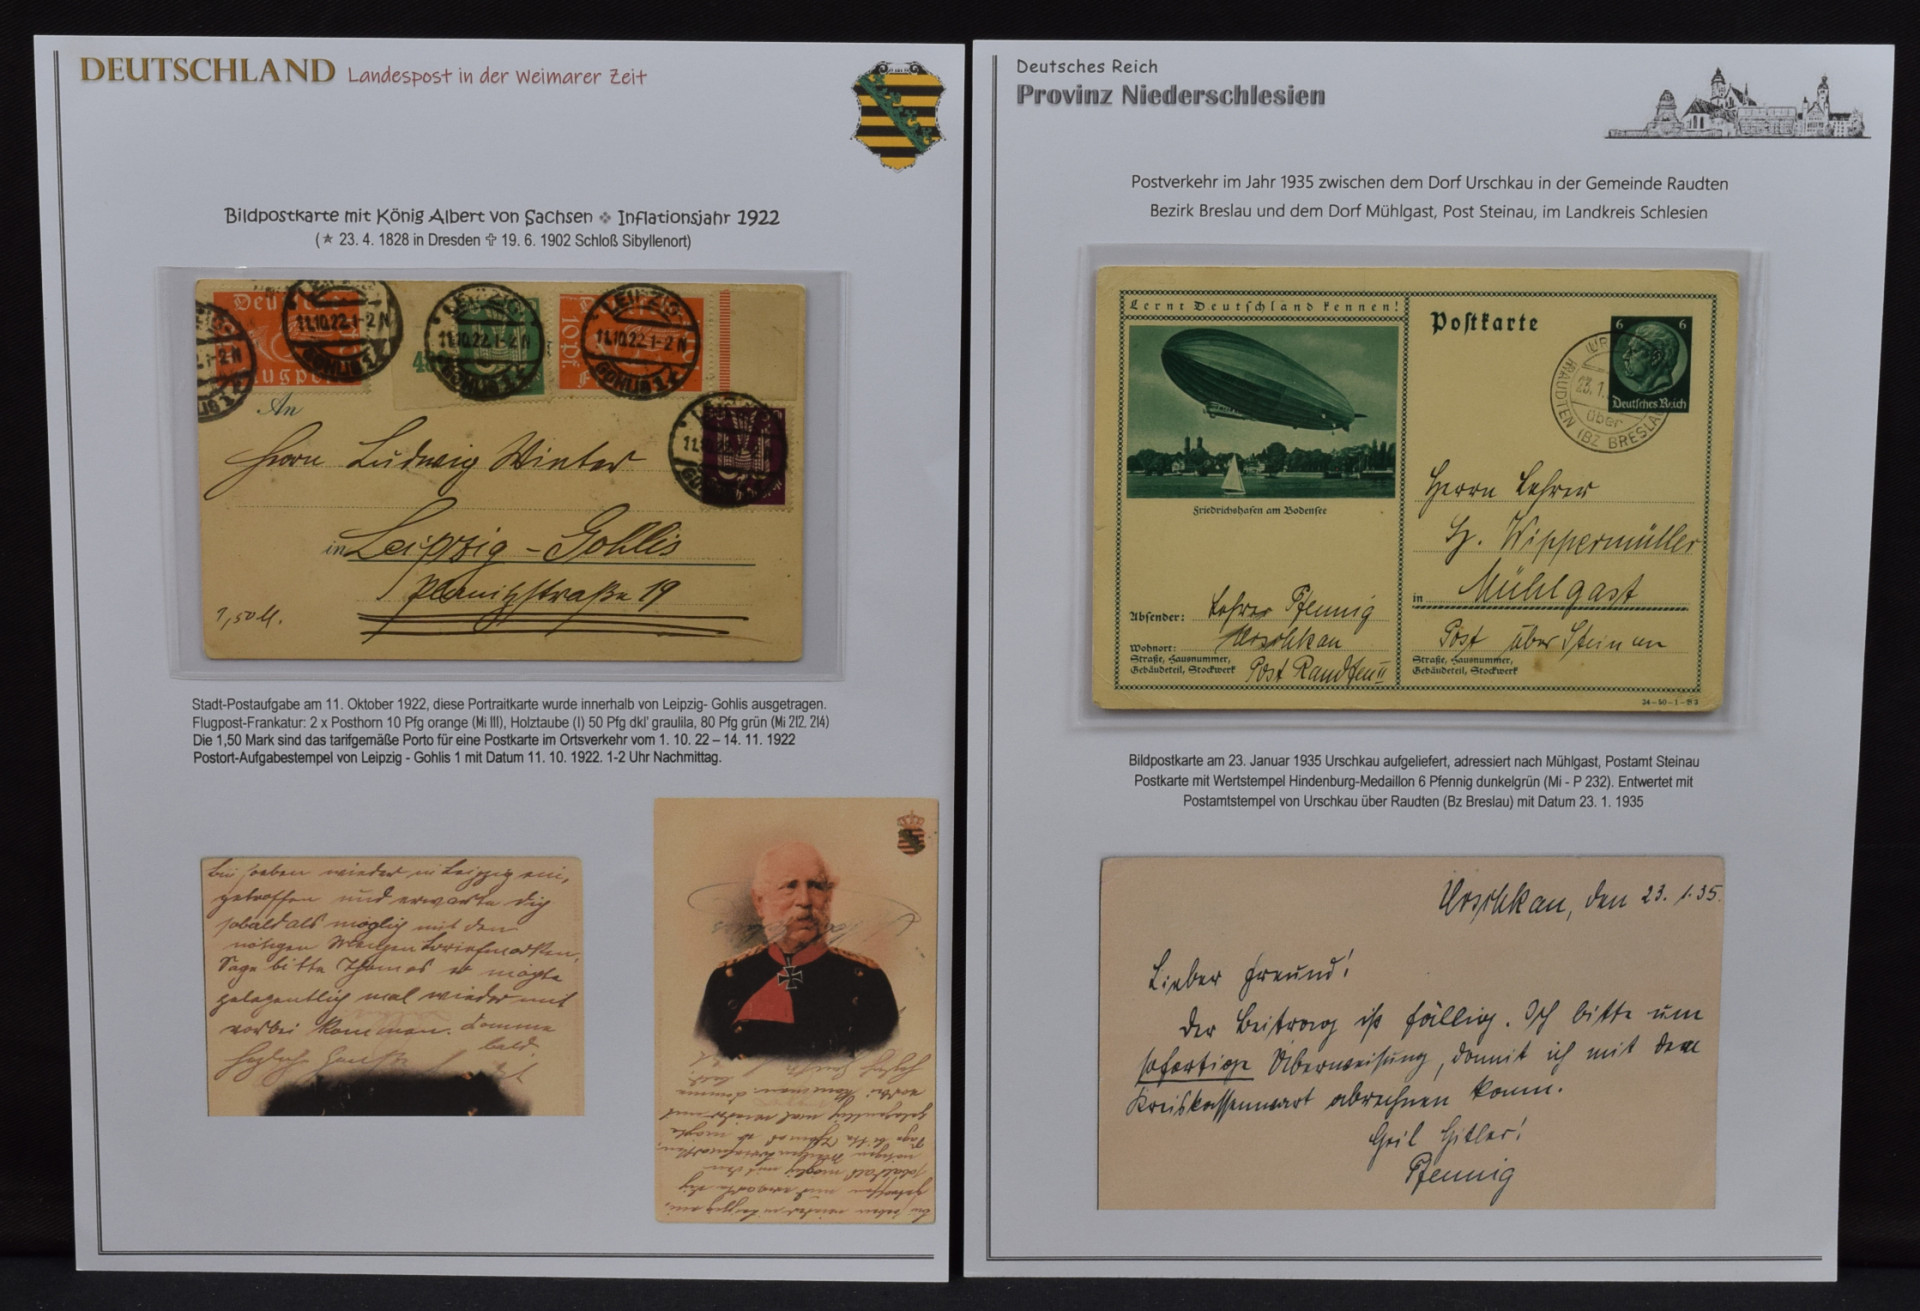 DEUTSCHLAND Landespost in der Weimarer Zeit
Bildpostkarte mit König Albert von Sachsen ❖ Inflationsjahr 1922
(★ 23. 4. 1828 in Dresden ✞ 19. 6. 1902 Schloß Sibyllenort)
LEIPZIG-
11.10.22.1-2 N
GOHLIS 1
LEIPZIG-
11.10.22.1-2 N
GOHLIS 1
LEIPZIG-
11.10.22.1-2 N
GOHLIS 1
10 Pf.
An
Herrn Ludwig Winter
in Leipzig-Gohlis
Planitzstraße 19
1,50 M.
Stadt-Postaufgabe am 11. Oktober 1922, diese Portraitkarte wurde innerhalb von Leipzig- Gohlis ausgetragen.
Flugpost-Frankatur: 2 x Posthorn 10 Pfg orange (Mi III), Holztaube (I) 50 Pfg dkl' graulila, 80 Pfg grün (Mi 212. 214)
Die 1,50 Mark sind das tarifgemäße Porto für eine Postkarte im Ortsverkehr vom 1. 10. 22 – 14. 11. 1922
Postort-Aufgabestempel von Leipzig - Gohlis 1 mit Datum 11. 10. 1922. 1-2 Uhr Nachmittag.
Bin soeben wieder in Leipzig ein,
getroffen und erwarte dich
sobald als möglich mit den
nötigen Mengen Briefmarken.
Sage bitte Thomas er möchte
gelegentlich mal wieder mit
vorbei kommen. Komme
bald
Deutsches Reich
Provinz Niederschlesien
Postverkehr im Jahr 1935 zwischen dem Dorf Urschkau in der Gemeinde Raudten
Bezirk Breslau und dem Dorf Mühlgast, Post Steinau, im Landkreis Schlesien
Lernt Deutschland kennen!
Friedrichshafen am Bodensee
Postkarte
6 6
Deutsches Reich
23.1.
über
RAUDTEN (BZ BRESLAU)
Herrn Lehrer
Hz. Wippermüller
in Mühlgast
Post über Steinau
Straße, Hausnummer,
Gebäudeteil, Stockwerk
Absender: Lehrer Pfennig
Wohnort: Urschkau
Straße, Hausnummer,
Gebäudeteil, Stockwerk Post Raudten II
Bildpostkarte am 23. Januar 1935 Urschkau aufgeliefert, adressiert nach Mühlgast, Postamt Steinau
Postkarte mit Wertstempel Hindenburg-Medaillon 6 Pfennig dunkelgrün (Mi - P 232). Entwertet mit
Postamtstempel von Urschkau über Raudten (Bz Breslau) mit Datum 23. 1. 1935
Urschkau, den 23. 1. 35.
Lieber Freund!
Der Beitrag ist fällig. Ich bitte um
sofortige Überweisung, damit ich mit dem
Kreiskassenwart abrechnen kann.
Heil Hitler!
Pfennig